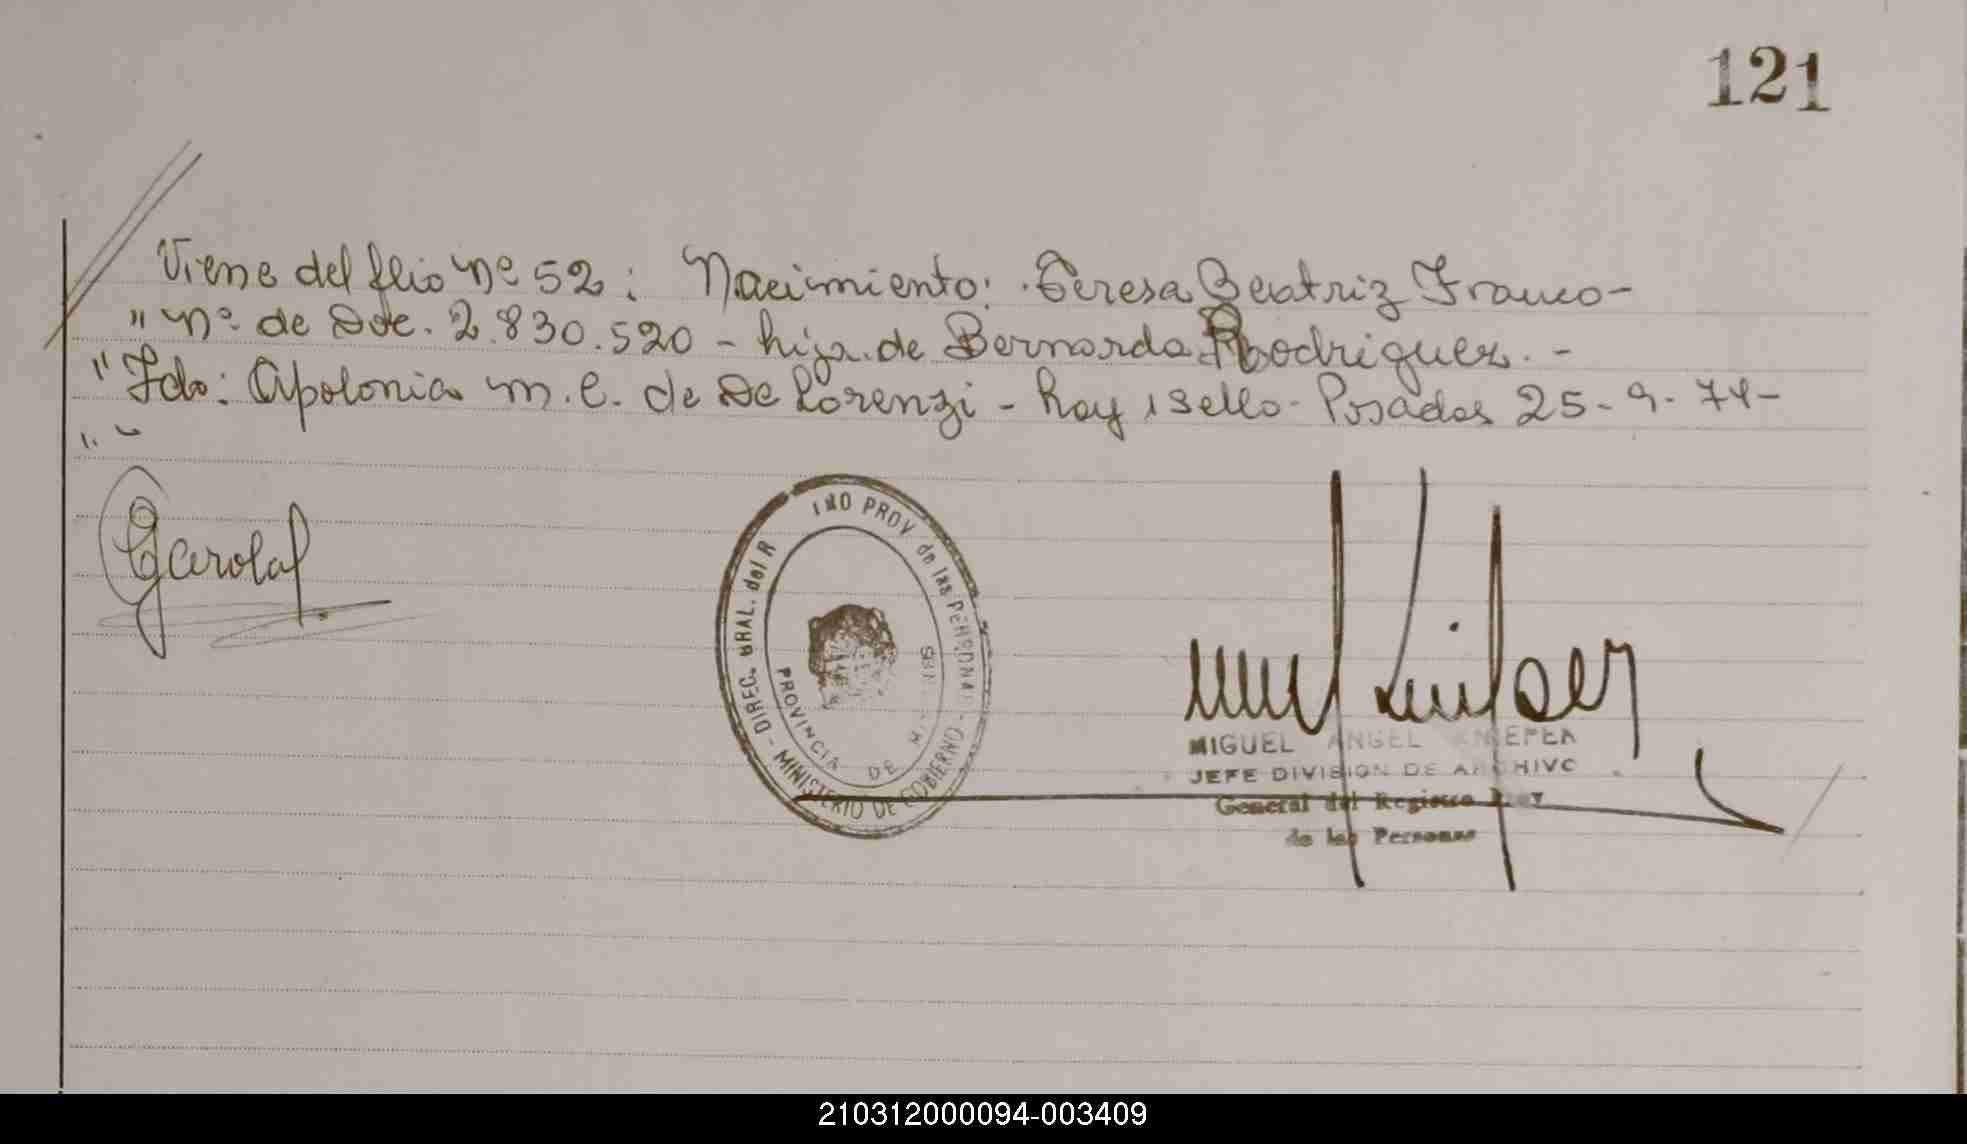 121
Viene del flio Nº 52: Nacimiento: Teresa Beatriz Franco-
" Nº de Doc. 2.830.520 - hija de Bernarda Rodriguez. -
" Fdo: Apolonia M. C. de De Lorenzi - hay 1 sello - Posadas 25-9-74-
" "
DIREC. GRAL. del R PROV de las PERSONAS - MINISTERIO DE GOBIERNO -
PROVINCIA DE
MIGUEL ANGEL
JEFE DIVISION DE ARCHIVO
General del Registro Prov
de las Personas
210312000094-003409